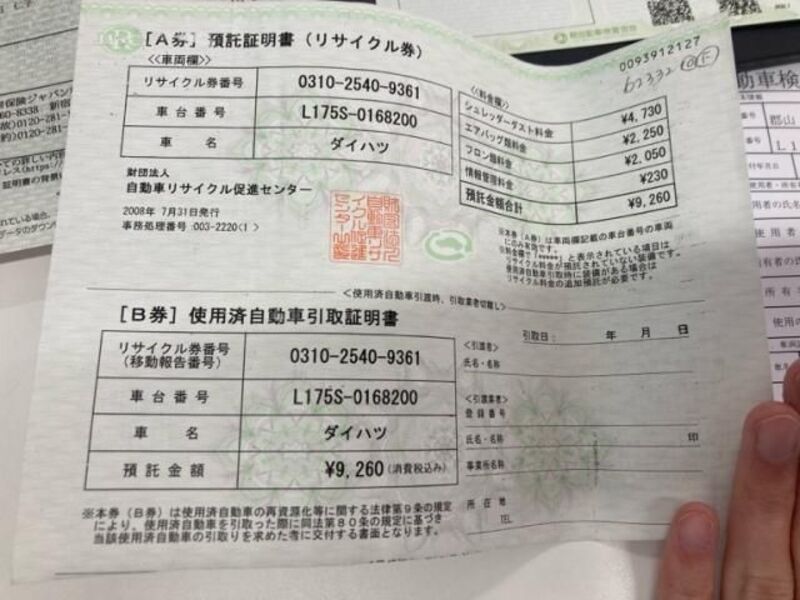 [A券] 預託証明書（リサイクル券）
0093912127
<<車両欄>>
リサイクル券番号 0310-2540-9361
車台番号 L175S-0168200
車名 ダイハツ
<<料金欄>>
シュレッダーダスト料金 ¥4,730
エアバッグ類料金 ¥2,250
フロン類料金 ¥2,050
情報管理料金 ¥230
預託金額合計 ¥9,260
財団法人
自動車リサイクル促進センター
2008年 7月31日発行
事務処理番号:003-2220<1 >
※本券（A券）は車両欄記載の車台番号の車両
にのみ有効です。
※料金欄で「*****」と表示されている項目は
リサイクル料金が預託されていない装備です。
使用済自動車引取時に装備がある場合は
リサイクル料金の追加預託が必要です。
<使用済自動車引渡時、引取業者切離し>
[B券] 使用済自動車引取証明書
リサイクル券番号
（移動報告番号） 0310-2540-9361
車台番号 L175S-0168200
車名 ダイハツ
預託金額 ¥9,260（消費税込み）
引取日： 年 月 日
<引渡者>
氏名・名称
<引取業者>
登録番号
氏名・名称 印
事業所名称
所在地
TEL
※本券（B券）は使用済自動車の再資源化等に関する法律第9条の規定
により、使用済自動車を引取った際に同法第80条の規定に基づき
当該使用済自動車の引取りを求めた者に交付する書面となります。